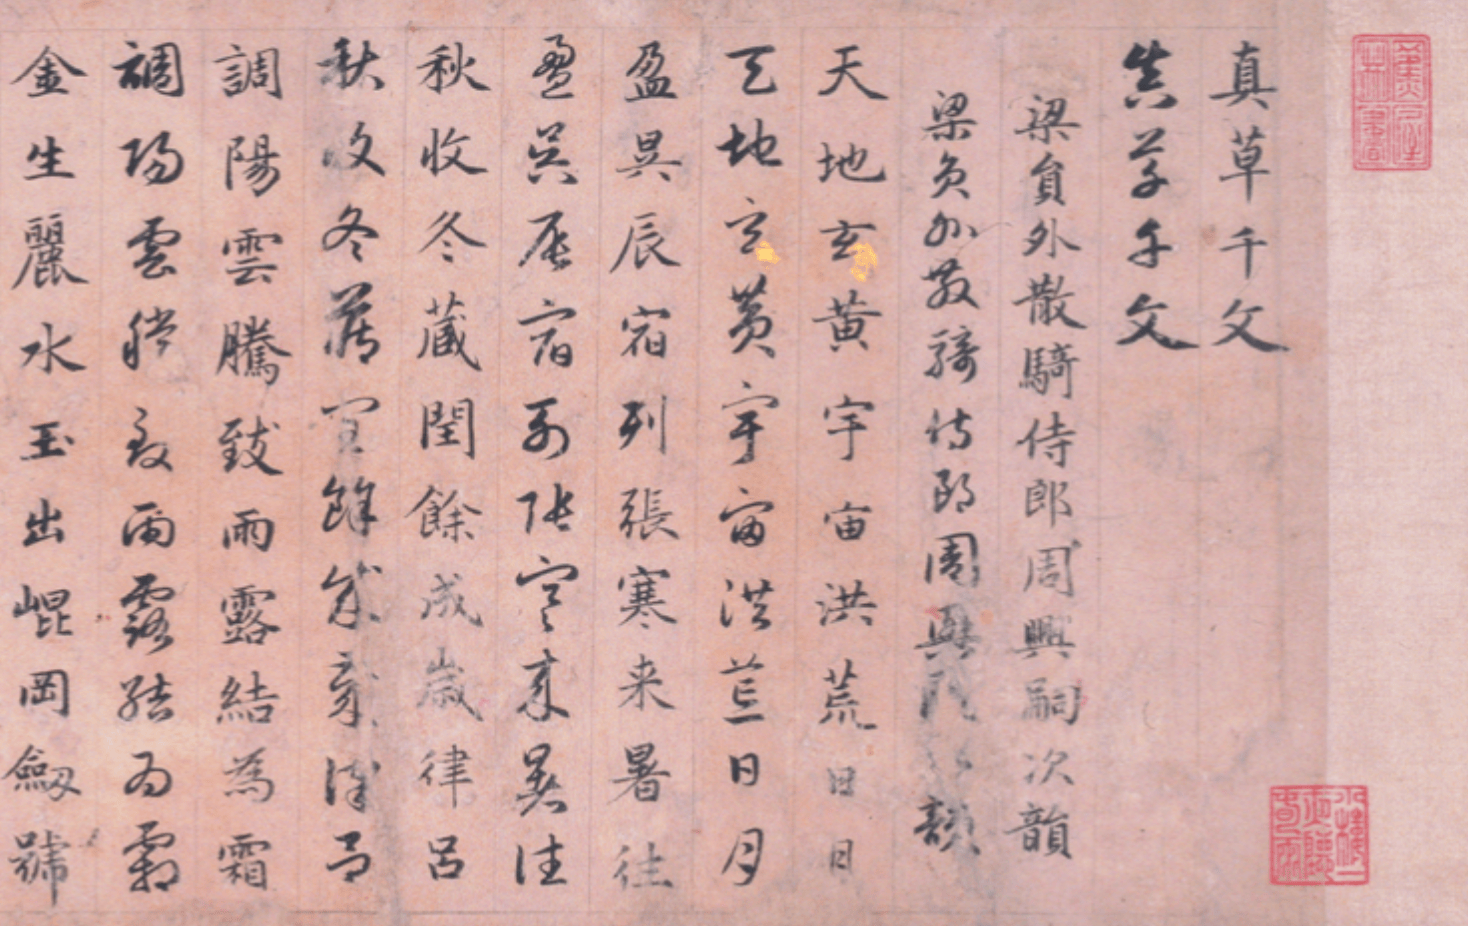 真草千文
真草千文
梁員外散騎侍郎周興嗣次韻
梁員外散騎侍郎周興次韻
天地玄黃宇宙洪荒日月
天地玄黃宇宙洪荒日月
盈昃辰宿列張寒来暑往
盈昃辰宿列張寒来暑往
秋收冬藏閏餘成歲律呂
秋收冬藏閏餘成歲律呂
調陽雲騰致雨露結為霜
調陽雲騰致雨露結為霜
金生麗水玉出崐岡劔號